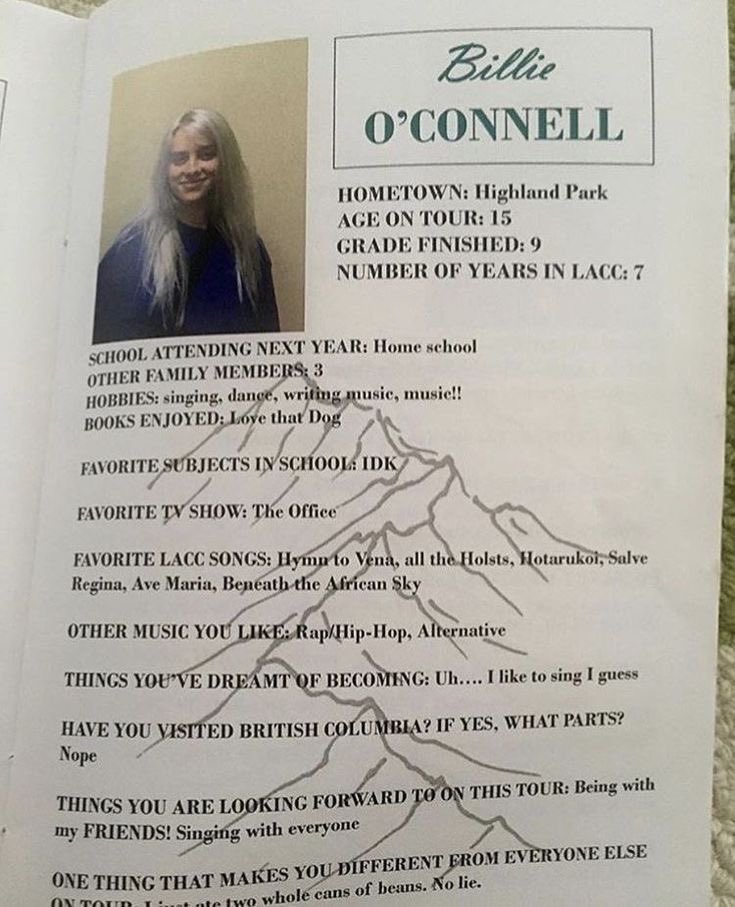 Billie
O'CONNELL
HOMETOWN: Highland Park
AGE ON TOUR: 15
GRADE FINISHED: 9
NUMBER OF YEARS IN LACC: 7
SCHOOL ATTENDING NEXT YEAR: Home school
OTHER FAMILY MEMBERS: 3
HOBBIES: singing, dance, writing music, music!!
BOOKS ENJOYED: Love that Dog
FAVORITE SUBJECTS IN SCHOOL: IDK
FAVORITE TV SHOW: The Office
FAVORITE LACC SONGS: Hymn to Vena, all the Holsts, Hotarukoi, Salve
Regina, Ave Maria, Beneath the African Sky
OTHER MUSIC YOU LIKE: Rap/Hip-Hop, Alternative
THINGS YOU'VE DREAMT OF BECOMING: Uh.... I like to sing I guess
HAVE YOU VISITED BRITISH COLUMBIA? IF YES, WHAT PARTS?
Nope
THINGS YOU ARE LOOKING FORWARD TO ON THIS TOUR: Being with
my FRIENDS! Singing with everyone
ONE THING THAT MAKES YOU DIFFERENT FROM EVERYONE ELSE
ON TOUR: I just ate two whole cans of beans. No lie.